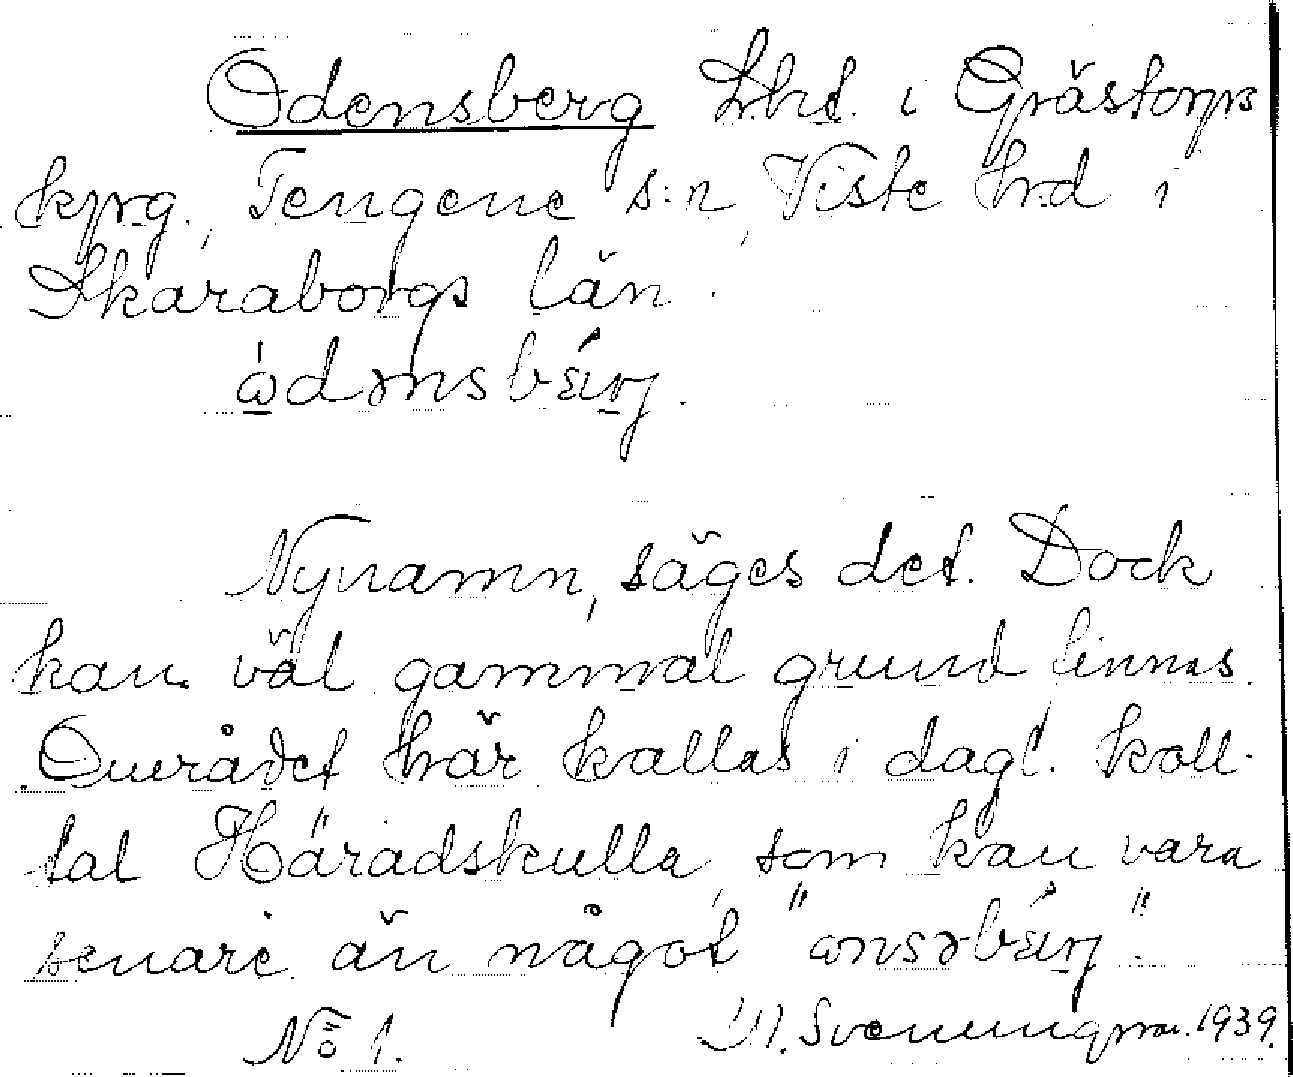 Odensberg Lht. i Grästorps
kpg., Tengene s:n, Viste hrd i
Skaraborgs län.
ὠdənsbærj.
Nynamn, säges det. Dock
kan väl gammal grund finnas.
Området här kallas i dagl. koll-
tal Häradskulla, som kan vara
senare än något "ωnsəbærj".
No 1. M. Svenningson. 1939.